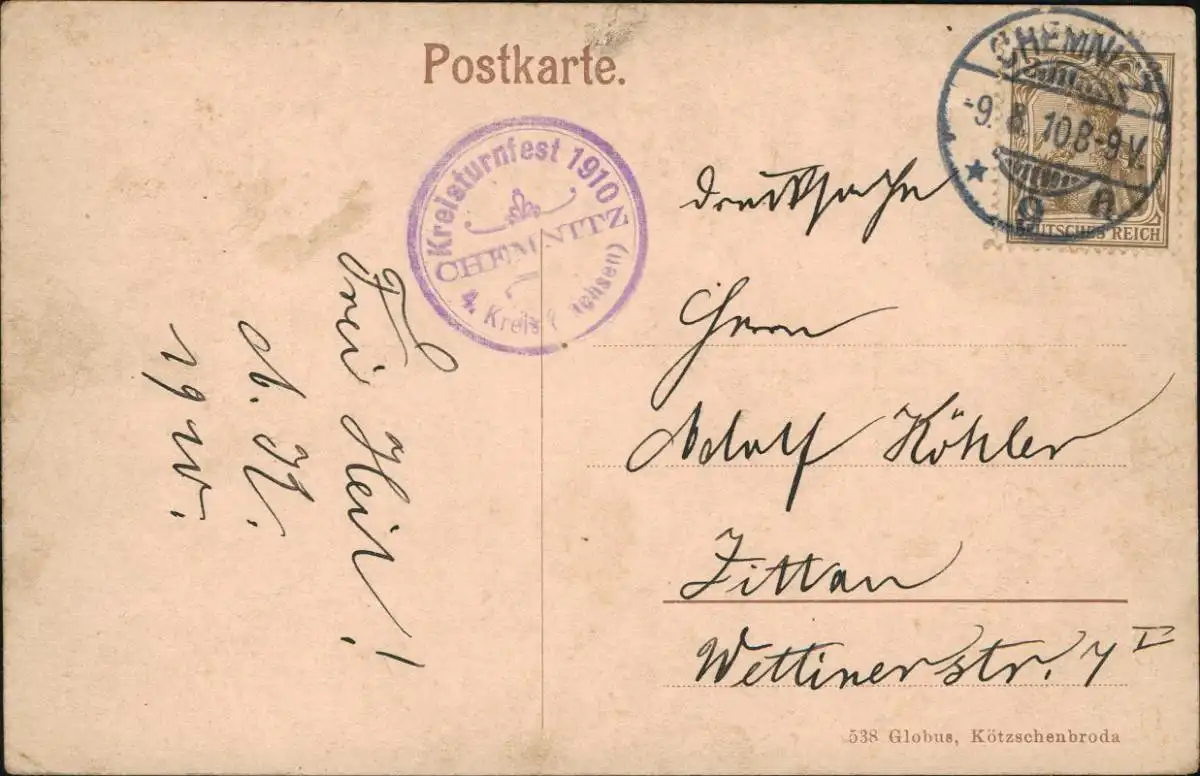 Postkarte.
CHEMNITZ
-9. 8. 10 8-9 V.
* g n
DEUTSCHES REICH
Kreisturnfest 1910
CHEMNITZ
4. Kreis (achsen)
Drucksache
Herrn
Adolf Köhler
Zittau
Wettinerstr. 4 I
Frei Heil!
A. K.
19 W.
538 Globus, Kötzschenbroda